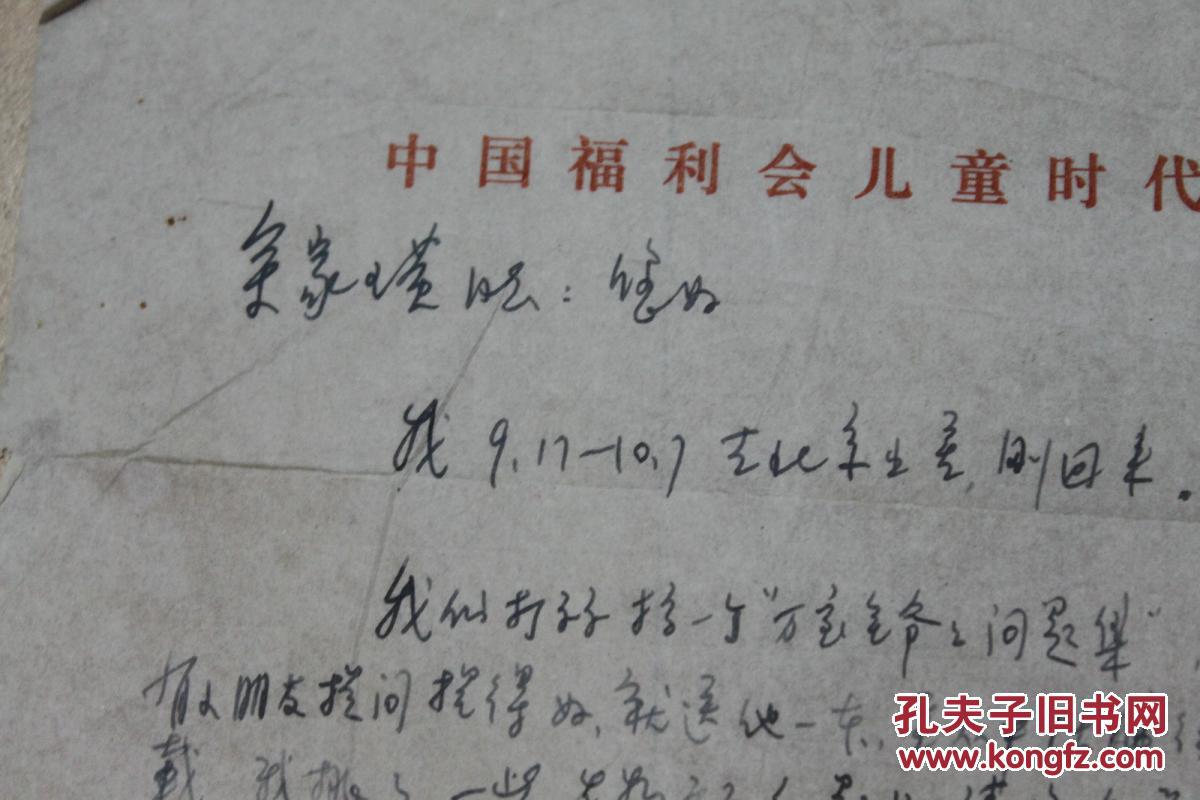 中国福利会儿童时代
宋家璜同志：您好
我9.17—10.7去北京出差，刚回来。
我们打算搞一个“万宝全爷爷问题集”，
有小朋友提问提得好，就送他一本，
载，我挑了一些
孔夫子旧书网
www.kongfz.com